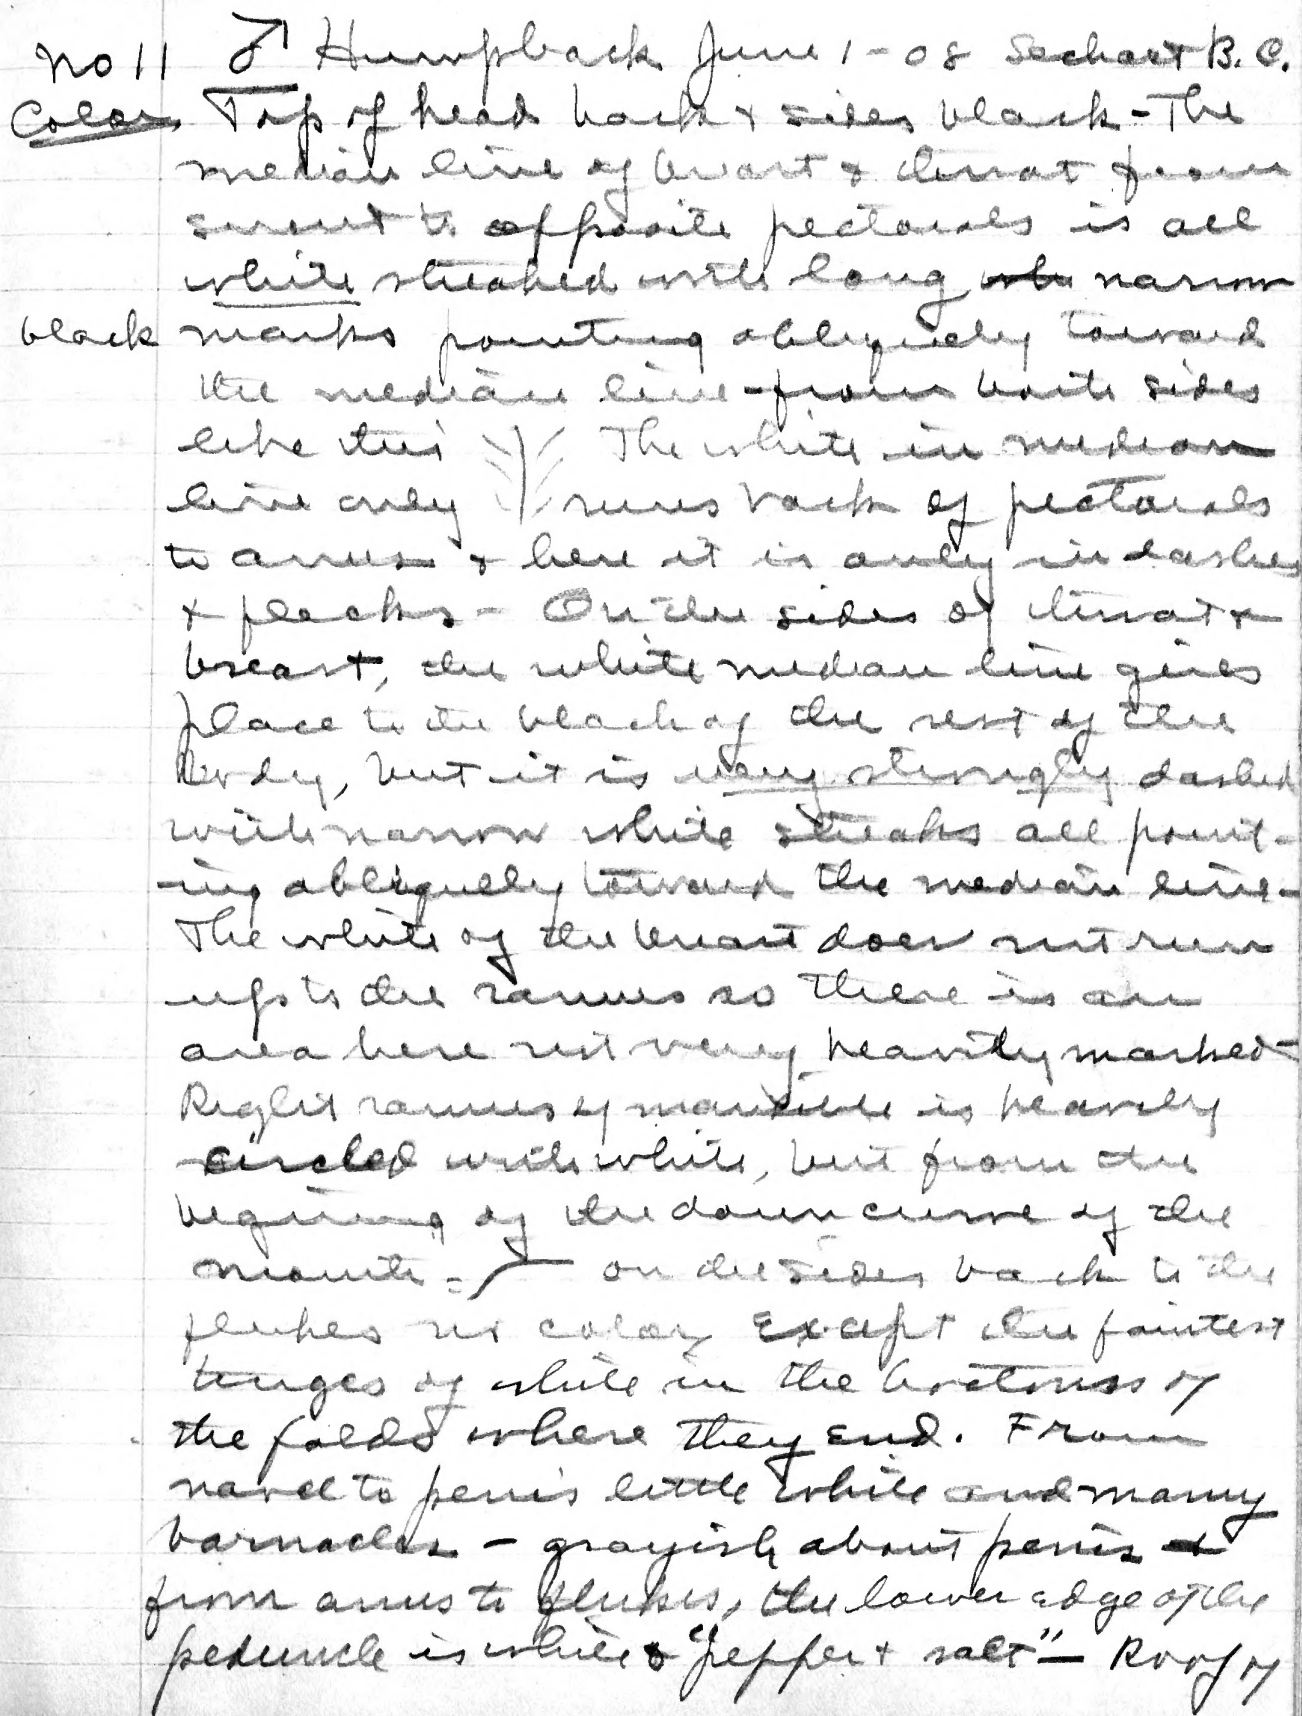 No 11 ♂ Humpback June 1 - 08 Sechart B.C.
Color Top of head back & sides black - The
median line of breast & throat from
snout to opposite pectorals is all
white streaked with long narrow
black marks pointing obliquely toward
the median line - from both sides
like this The white in median
line only runs back of pectorals
to anus & here it is only in dashes
& flecks - On the sides of throat &
breast, the white median line gives
place to the black of the rest of the
body, but it is very strongly dashed
with narrow white streaks all point-
ing obliquely toward the median line -
The white of the breast does not run
up to the ramus so there is an
area here not very heavily marked -
Right ramus of mandible is heavily
circled with white, but from the
begining of the down curve of the
mouth - on the sides back to the
flukes no color except the faintest
tinges of white in the bottoms of
the folds where they end. From
navel to penis little white and many
barnacles - grayish about penis &
from anus to flukes, the lower edge of the
peduncle is white & "pepper & salt" - Roof of